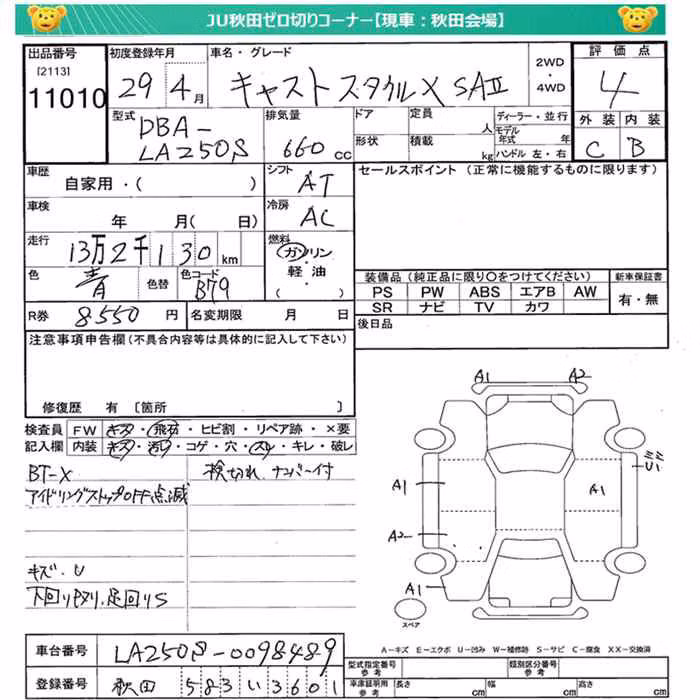 JU秋田ゼロ切りコーナー【現車：秋田会場】
出品番号
[2113]
11010
初度登録年月
29年4月
車名・グレード
キャスト スタイル X SAⅡ
2WD
・
4WD
評価点
4
外装 内装
C B
型式
DBA-
LA250S
排気量
660cc
ドア
形状
定員 人
積載 kg
ディーラー・並行
モデル
年式 年
ハンドル 左・右
車歴
自家用・( )
シフト
AT
車検
年 月( 日)
冷房
AC
走行
13万2千130km
燃料
ガソリン
・
軽油
・
( )
色
青
色替
色コード
B79
R券 8550円
名変期限 月 日
セールスポイント（正常に機能するものに限ります）
装備品（純正品に限り○をつけてください）
PS PW ABS エアB AW
SR ナビ TV カワ
新車保証書
有・無
後日品
注意事項申告欄(不具合内容等は具体的に記入して下さい)
修復歴 有〔箇所 〕
検査員 FW キズ・飛石・ヒビ割・リペア跡・×要
記入欄 内装 キズ・汚れ・コゲ・穴・スレ・キレ・破レ
BT-X
アイドリングストップOFF点滅
検切れ、ナンバー付
キズ・U
下回りサビ、足回りS
A1 A2
A1
A2
A1
A1
U1
スペア
A－キズ E－エクボ U－凹み W－補修跡 S－サビ C－腐食 XX－交換済
車台番号 LA250S-0098489
登録番号 秋田 583 い 3601
型式指定番号
参考
類別区分番号
参考
車庫証明用
参考
長さ cm
幅 cm
高さ cm